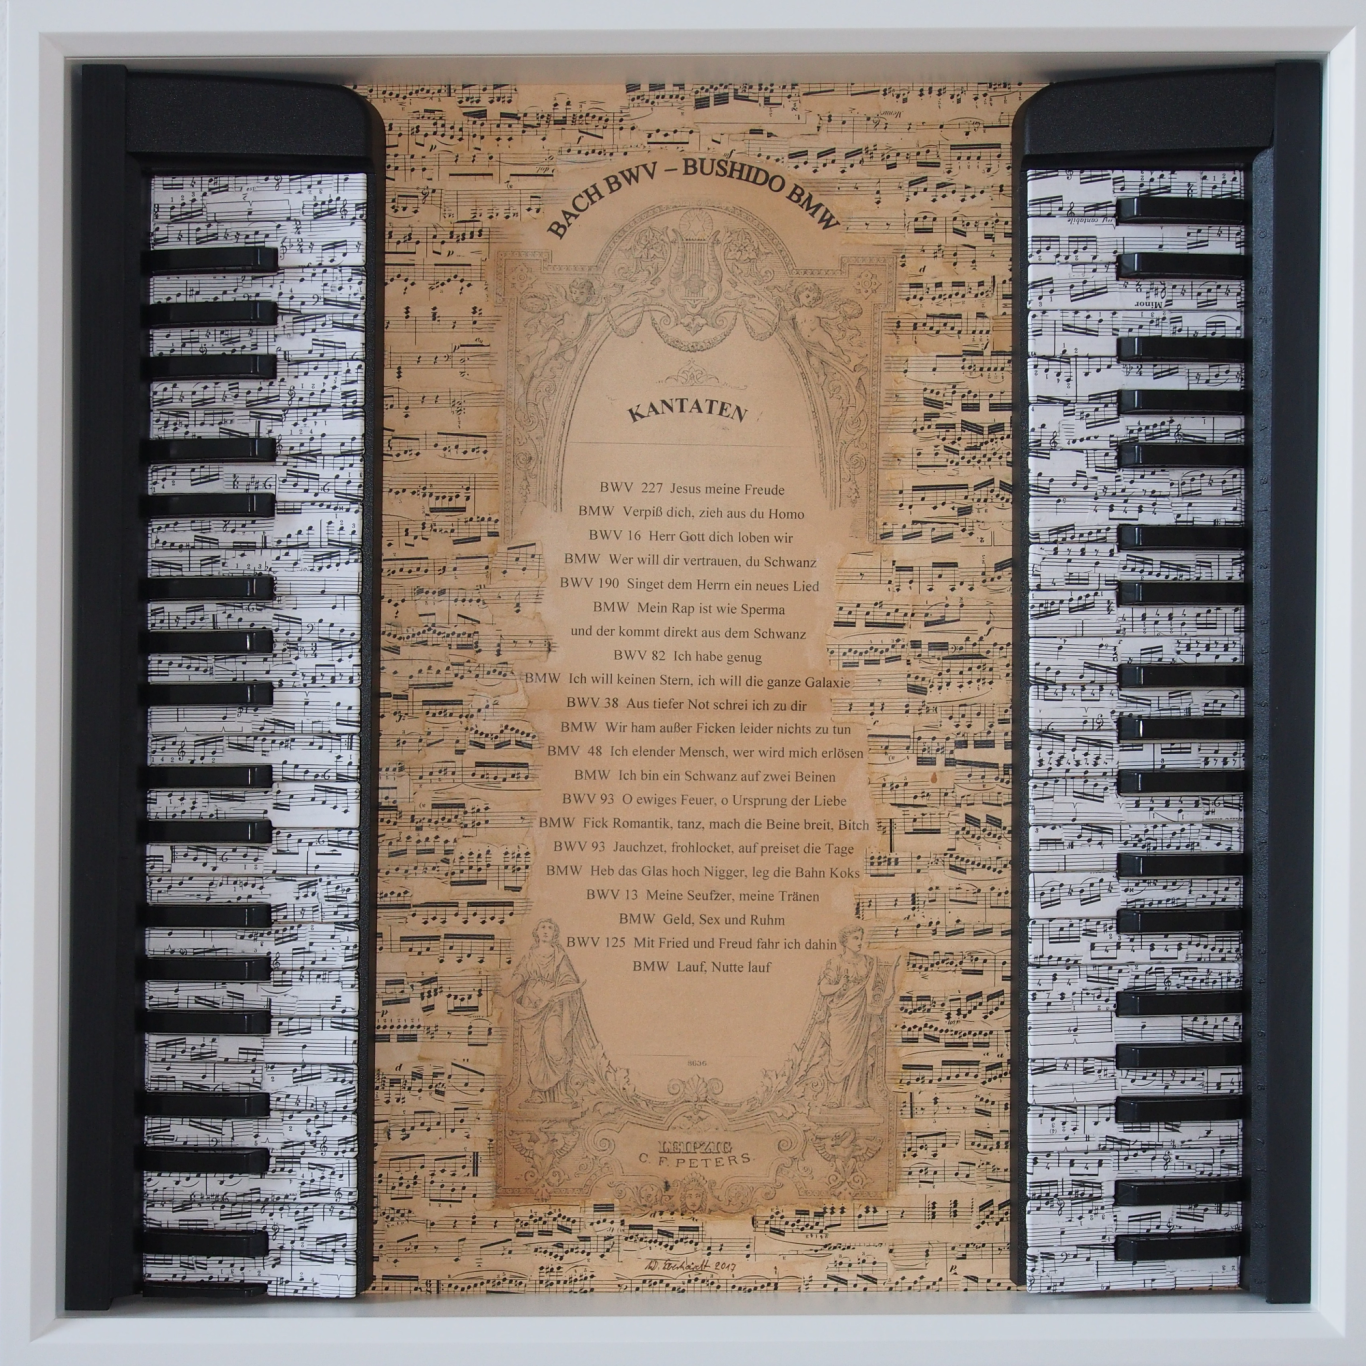 BACH BWV – BUSHIDO BMW
KANTATEN
BWV 227 Jesus meine Freude
BMW Verpiß dich, zieh aus du Homo
BWV 16 Herr Gott dich loben wir
BMW Wer will dir vertrauen, du Schwanz
BWV 190 Singet dem Herrn ein neues Lied
BMW Mein Rap ist wie Sperma
und der kommt direkt aus dem Schwanz
BWV 82 Ich habe genug
BMW Ich will keinen Stern, ich will die ganze Galaxie
BWV 38 Aus tiefer Not schrei ich zu dir
BMW Wir ham außer Ficken leider nichts zu tun
BMV 48 Ich elender Mensch, wer wird mich erlösen
BMW Ich bin ein Schwanz auf zwei Beinen
BWV 93 O ewiges Feuer, o Ursprung der Liebe
BMW Fick Romantik, tanz, mach die Beine breit, Bitch
BWV 93 Jauchzet, frohlocket, auf preiset die Tage
BMW Heb das Glas hoch Nigger, leg die Bahn Koks
BWV 13 Meine Seufzer, meine Tränen
BMW Geld, Sex und Ruhm
BWV 125 Mit Fried und Freud fahr ich dahin
BMW Lauf, Nutte lauf
9636
LEIPZIG
C. F. PETERS.
2017